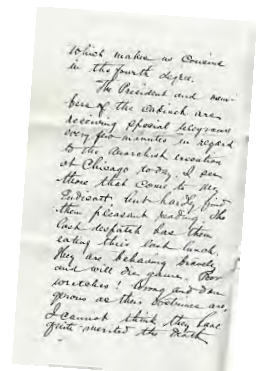 which makes us Cousins
in the fourth degree.
The President and mem-
bers of the Cabinet are
receiving special telegrams
every few minutes in regard
to the Anarchist execution
at Chicago to-day. I see
those that come to
Endicott, but hardly find
them pleasant reading. The
last despatch has them
eating their last lunch.
They are behaving bravely
and will die game. Poor
wretches! Wrong and dan-
gerous as their doctrines are,
I cannot think they have
quite merited the death